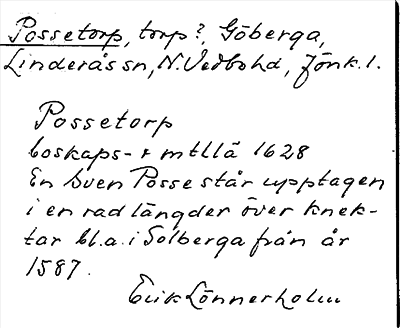 Possetorp, torp?, Göberga,
Linderås sn, N. Vedbo hd, Jönk. l.
Possetorp
boskaps- & mtllä 1628
En Sven Posse står upptagen
i en rad längder över knek-
tar bl.a. i Solberga från år
1587.
Erik Lönnerholm